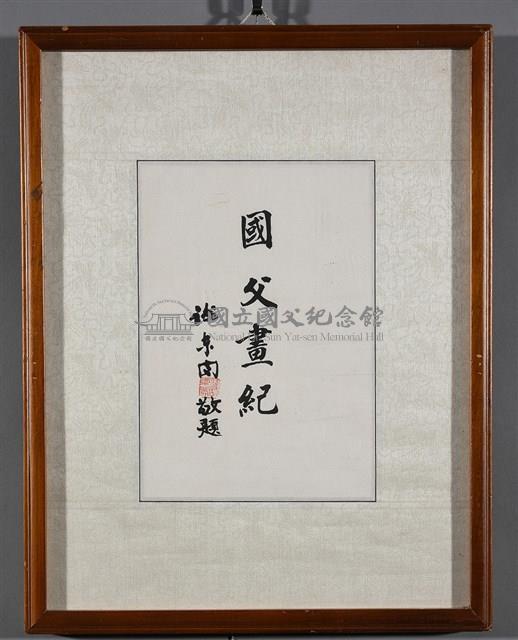 國父畫紀
敬題
國立國父紀念館
National Dr. Sun Yat-sen Memorial Hall
國立國父紀念館